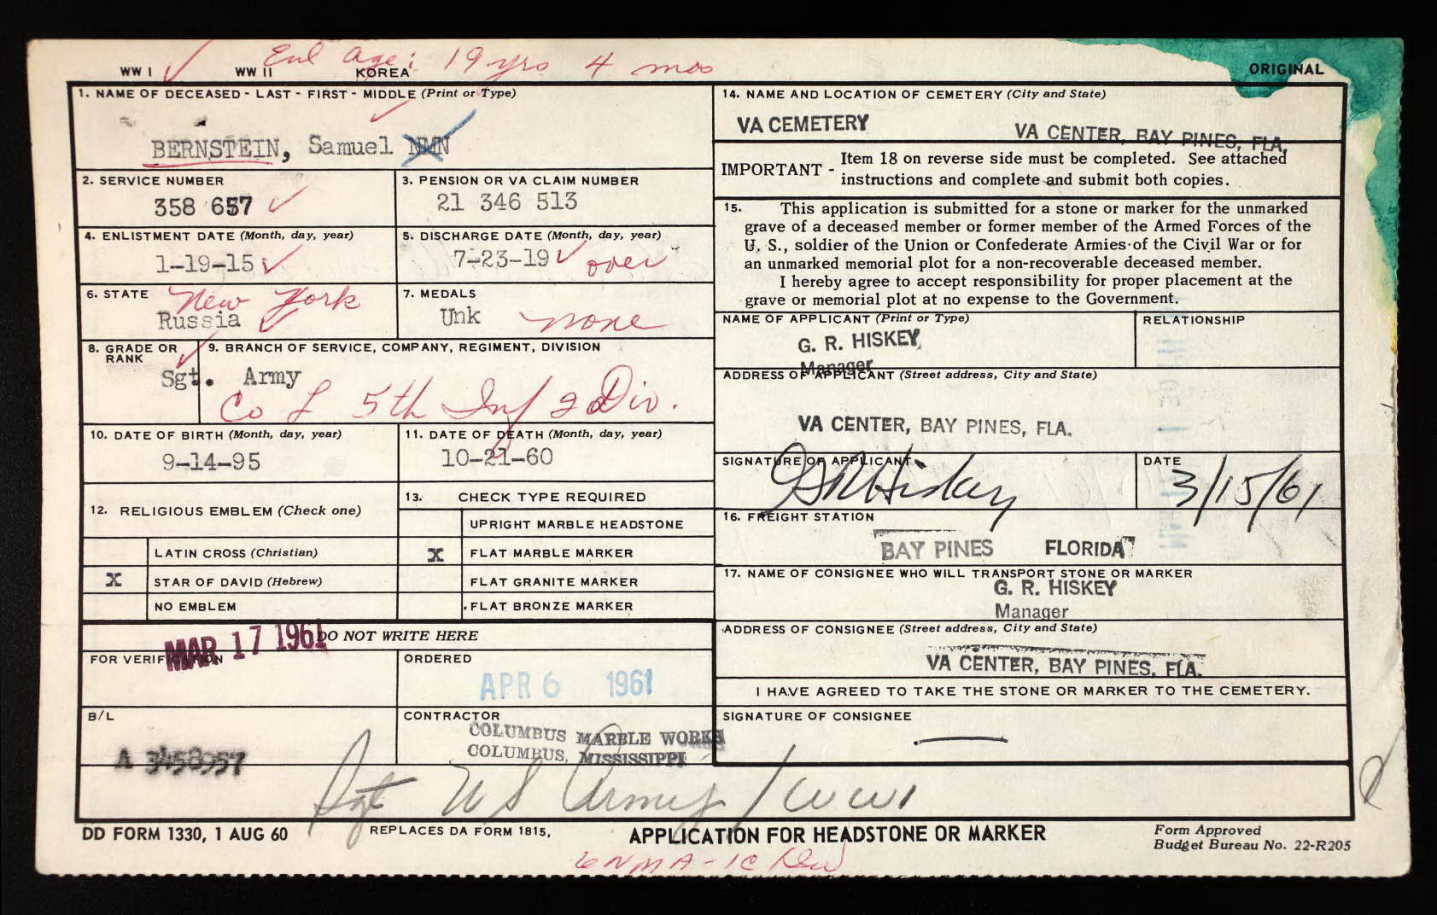 Enl Age: 19 yrs 4 mos
WW I WW II KOREA
ORIGINAL
1. NAME OF DECEASED - LAST - FIRST - MIDDLE (Print or Type)
BERNSTEIN, Samuel NMN
2. SERVICE NUMBER
358 657
3. PENSION OR VA CLAIM NUMBER
21 346 513
4. ENLISTMENT DATE (Month, day, year)
1-19-15
5. DISCHARGE DATE (Month, day, year)
7-23-19 over
6. STATE New York
Russia
7. MEDALS
Unk none
8. GRADE OR RANK
Sgt.
9. BRANCH OF SERVICE, COMPANY, REGIMENT, DIVISION
Army
Co L 5th Inf 2 Div.
10. DATE OF BIRTH (Month, day, year)
9-14-95
11. DATE OF DEATH (Month, day, year)
10-21-60
12. RELIGIOUS EMBLEM (Check one)
LATIN CROSS (Christian)
X STAR OF DAVID (Hebrew)
NO EMBLEM
13. CHECK TYPE REQUIRED
UPRIGHT MARBLE HEADSTONE
X FLAT MARBLE MARKER
FLAT GRANITE MARKER
FLAT BRONZE MARKER
DO NOT WRITE HERE
MAR 17 1961
FOR VERIFICATION
ORDERED
APR 6 1961
B/L
A 3458957
CONTRACTOR
COLUMBUS MARBLE WORKS
COLUMBUS, MISSISSIPPI
14. NAME AND LOCATION OF CEMETERY (City and State)
VA CEMETERY VA CENTER, BAY PINES, FLA.
IMPORTANT - Item 18 on reverse side must be completed. See attached
instructions and complete and submit both copies.
15. This application is submitted for a stone or marker for the unmarked
grave of a deceased member or former member of the Armed Forces of the
U. S., soldier of the Union or Confederate Armies of the Civil War or for
an unmarked memorial plot for a non-recoverable deceased member.
I hereby agree to accept responsibility for proper placement at the
grave or memorial plot at no expense to the Government.
NAME OF APPLICANT (Print or Type)
G. R. HISKEY,
Manager
RELATIONSHIP
ADDRESS OF APPLICANT (Street address, City and State)
VA CENTER, BAY PINES, FLA.
SIGNATURE OF APPLICANT
G R Hiskey
DATE
3/15/61
16. FREIGHT STATION
BAY PINES FLORIDA
17. NAME OF CONSIGNEE WHO WILL TRANSPORT STONE OR MARKER
G. R. HISKEY
Manager
ADDRESS OF CONSIGNEE (Street address, City and State)
VA CENTER, BAY PINES, FLA.
I HAVE AGREED TO TAKE THE STONE OR MARKER TO THE CEMETERY.
SIGNATURE OF CONSIGNEE
Sgt US Army / WWI
DD FORM 1330, 1 AUG 60
REPLACES DA FORM 1815,
APPLICATION FOR HEADSTONE OR MARKER
Form Approved
Budget Bureau No. 22-R205